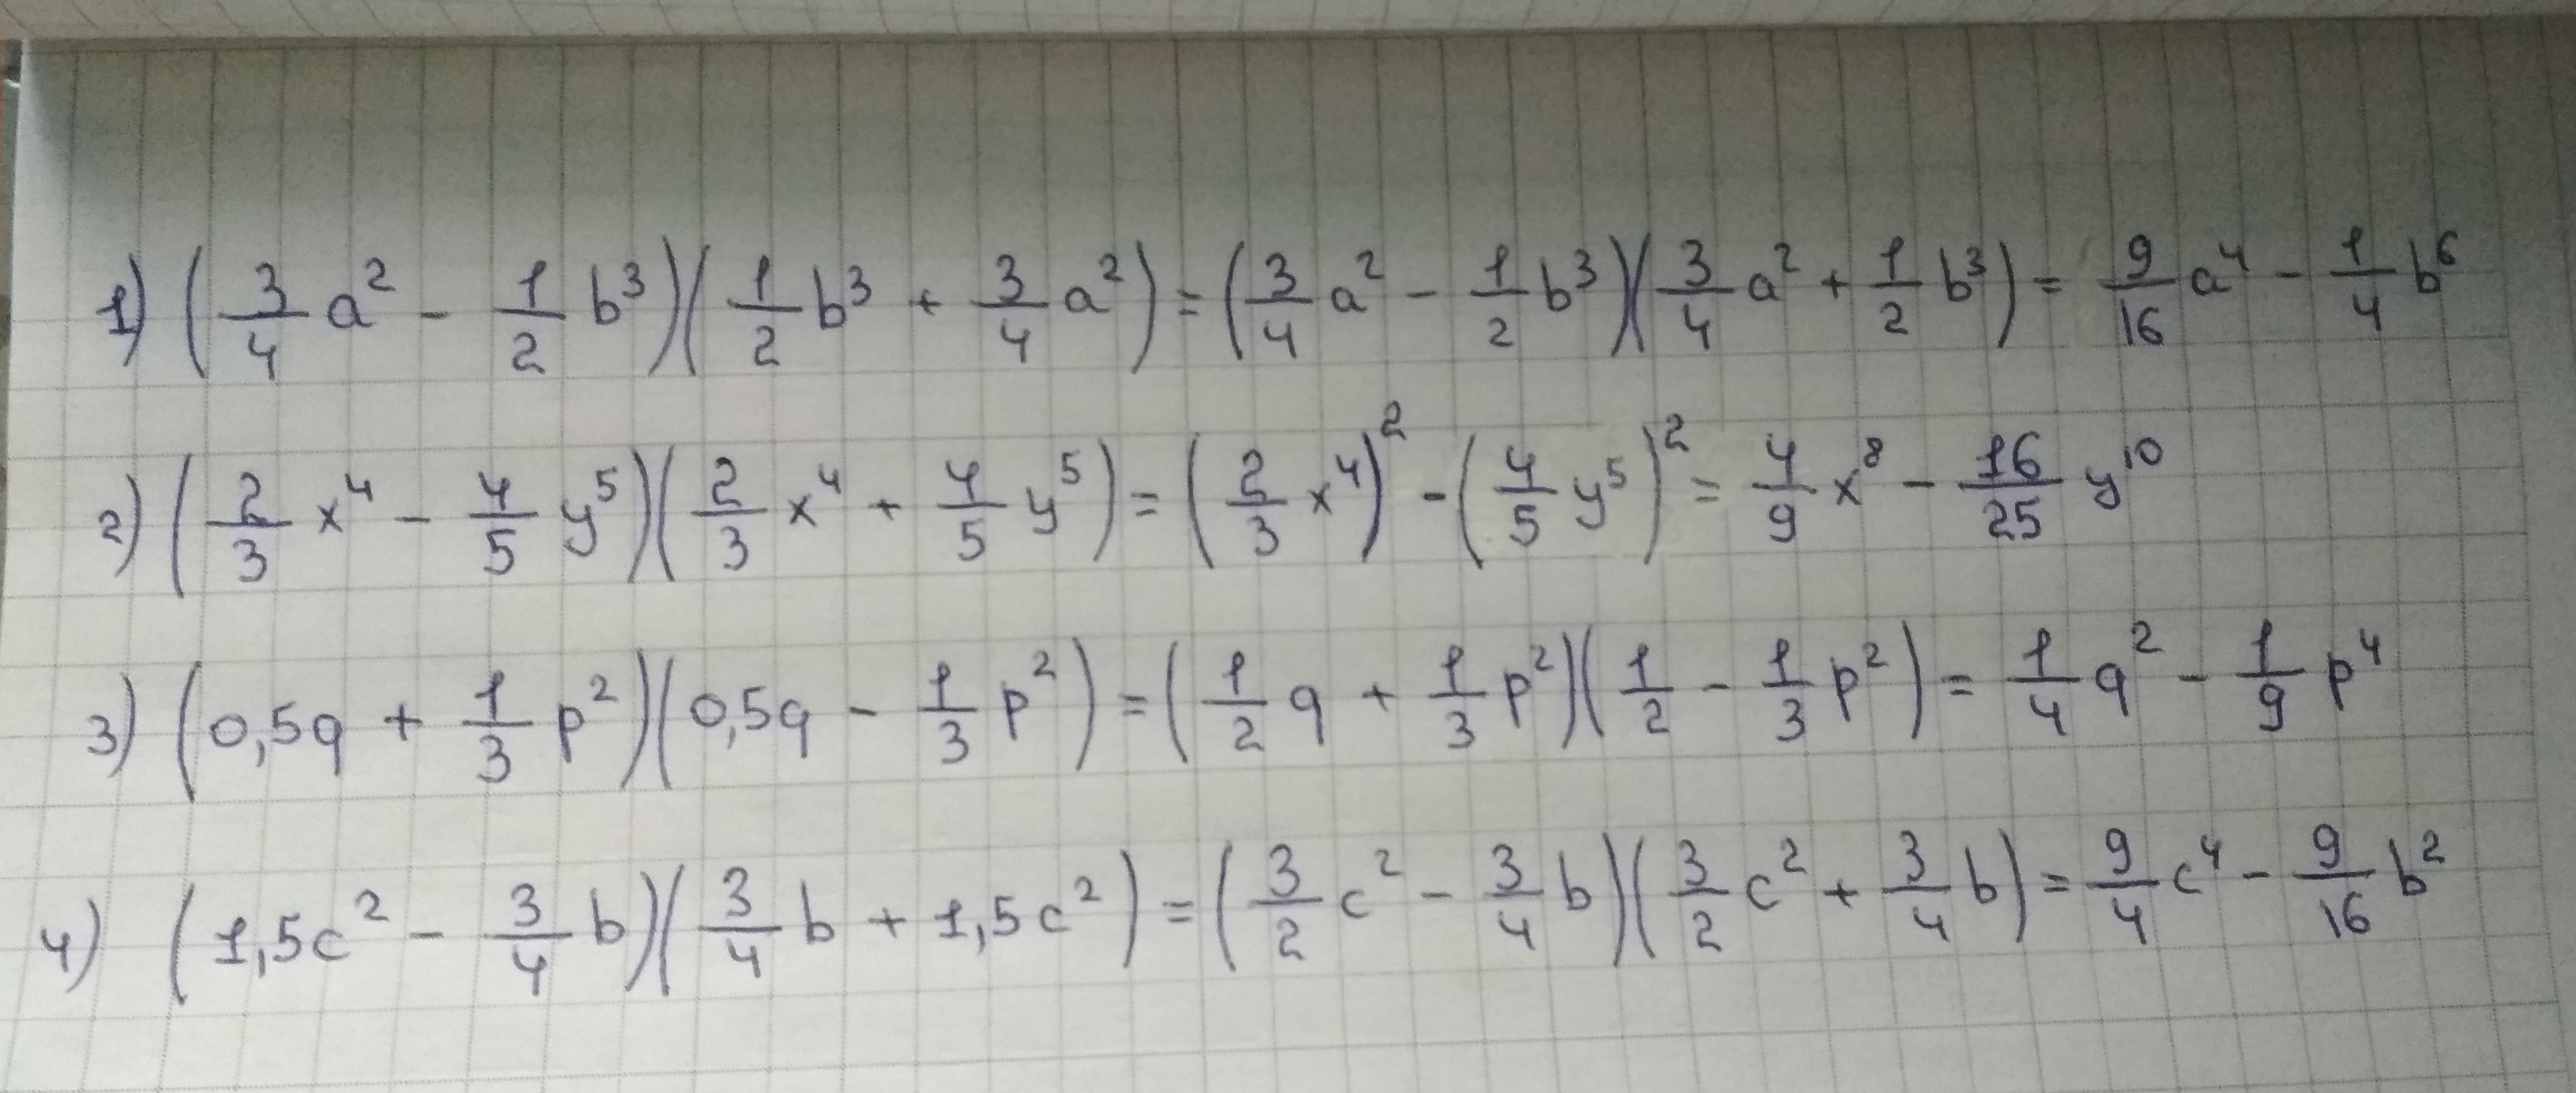 1) (3/4 a² - 1/2 b³)(1/2 b³ + 3/4 a²) = (3/4 a² - 1/2 b³)(3/4 a² + 1/2 b³) = 9/16 a⁴ - 1/4 b⁶
2) (2/3 x⁴ - 4/5 y⁵)(2/3 x⁴ + 4/5 y⁵) = (2/3 x⁴)² - (4/5 y⁵)² = 4/9 x⁸ - 16/25 y¹⁰
3) (0,5q + 1/3 p²)(0,5q - 1/3 p²) = (1/2 q + 1/3 p²)(1/2 - 1/3 p²) = 1/4 q² - 1/9 p⁴
4) (1,5c² - 3/4 b)(3/4 b + 1,5c²) = (3/2 c² - 3/4 b)(3/2 c² + 3/4 b) = 9/4 c⁴ - 9/16 b²